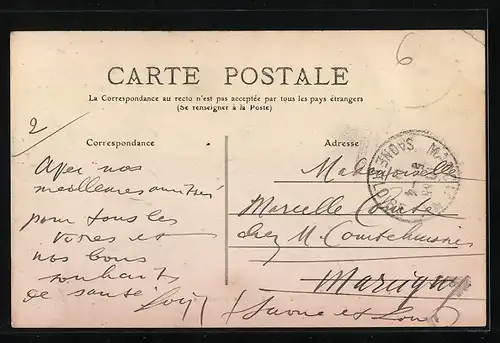 6
CARTE POSTALE
La Correspondance au recto n'est pas acceptée par tous les pays étrangers
(Se renseigner à la Poste)
2
Correspondance
Adresse
nos
meilleures
pour tous les
vôtres et
nos bons
souhaits
de santé
Mademoiselle
Marcelle
chez M.
(Saone et Loire)